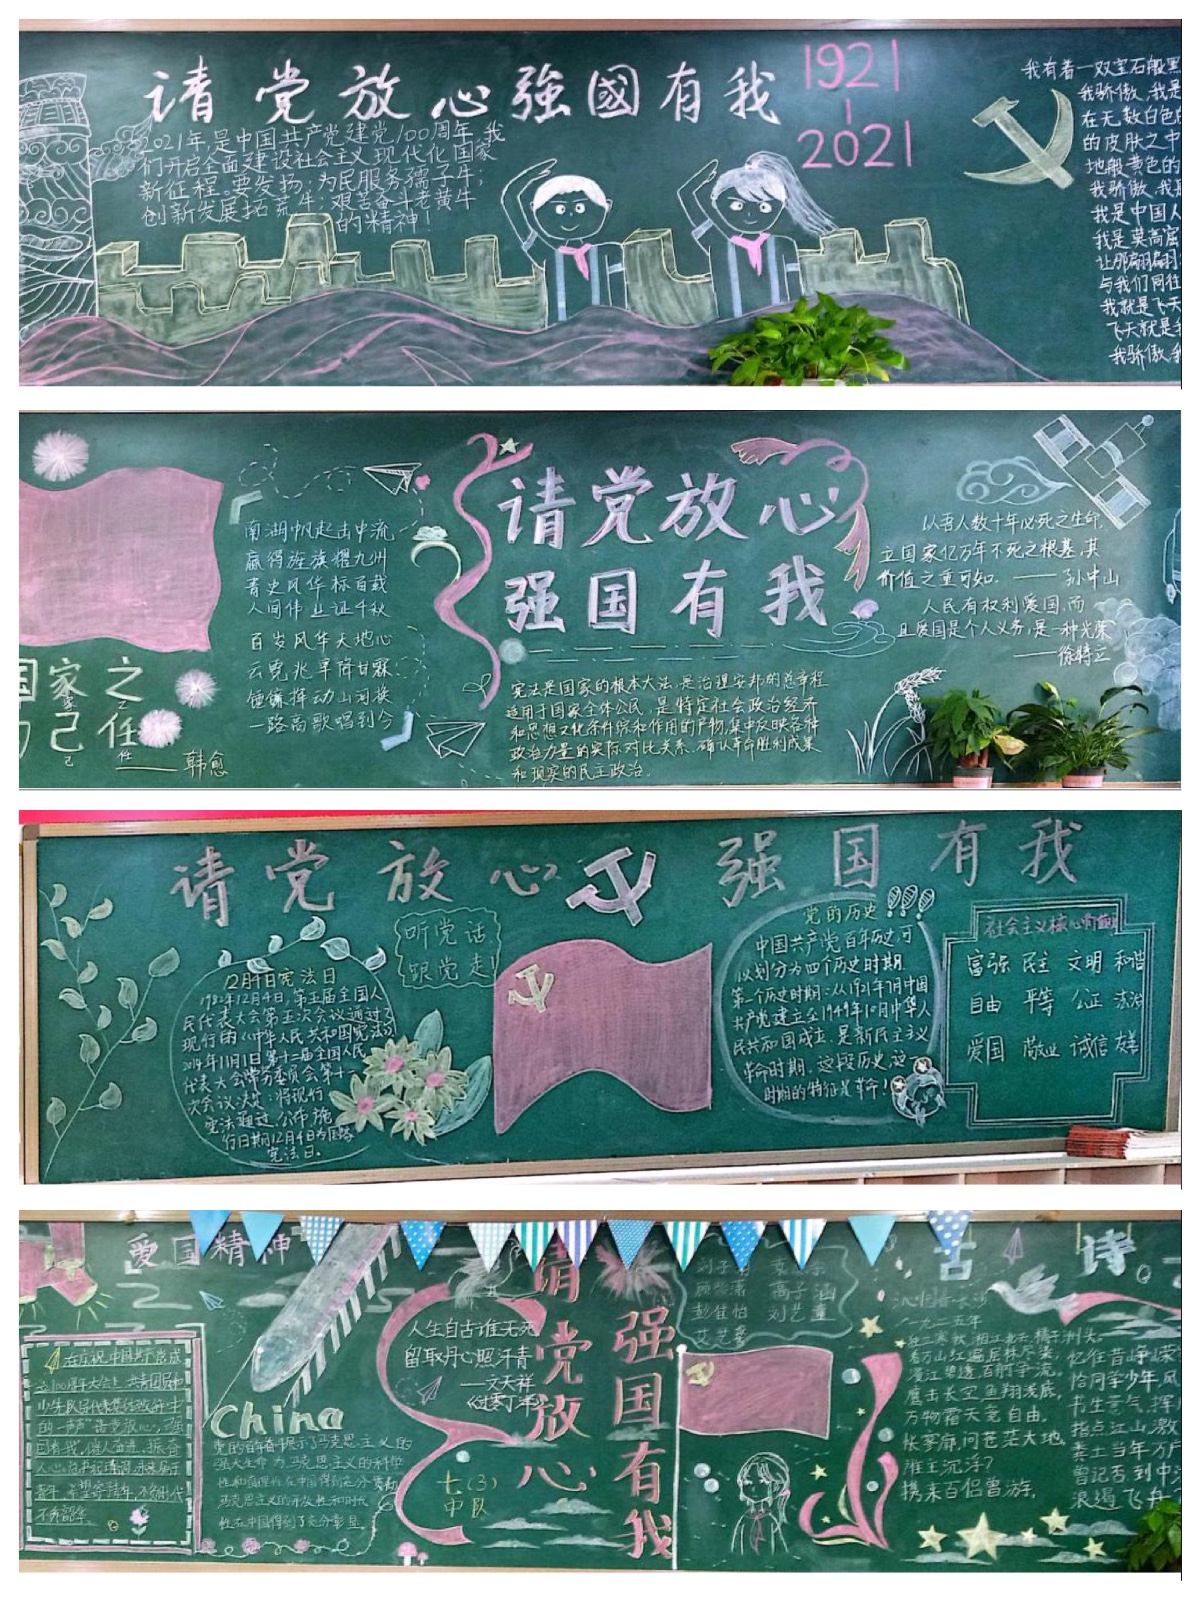 请党放心強國有我
1921
2021
2021年,是中国共产党建党100周年,我
们开启全面建设社会主义现代化国家
新征程。要发扬:为民服务孺子牛,
创新发展拓荒牛;艰苦奋斗老黄牛
的精神!
我有着一双宝石般黑
我骄傲,我是
在无数白色的
的皮肤之中
地般黄色的
我骄傲,我是
我是中国人
我是莫高窟
让那翩翩
与我们同往
我就是飞天
飞天就是我
我骄傲,我
国家之
己任
——韩愈
南湖帆起击中流
赢得旌旗耀九洲
青史风华标百载
人间伟业证千秋
百岁风华天地心
云霓兆旱降甘霖
锤镰挥动山河换
一路高歌唱到今
请党放心
强国有我
宪法是国家的根本大法,是治理安邦的总章程
适用于国家全体公民,是特定社会政治经济
和思想文化条件综和作用的产物,集中反映各种
政治力量的实际对比关系,确认革命胜利成果
和现实的民主政治。
以吾人数十年必死之生命,
立国家亿万年不死之根基,其
价值之重可知.——孙中山
人民有权利爱国,而
且爱国是个人义务,是一种光荣
——徐特立
请党放心 强国有我
12月4日宪法日
1982年12月4日,第五届全国人
民代表大会第五次会议通过了
现行的《中华人民共和国宪法》
2014年11月1日第十二届全国人民
代表大会常务委员会第十一
次会议决定:将现行
宪法通过、公布、施
行日期12月4日为国家
宪法日。
听党话
跟党走
党的历史
中国共产党百年历史可
以划分为四个历史时期
第一个历史时期:从1921年7月中国
共产党建立至1949年10月中华人
民共和国成立,是新民主主义
革命时期,这段历史这
时期的特征是革命.
社会主义核心价值观
富强 民主 文明 和谐
自由 平等 公正 法治
爱国 敬业 诚信 友善
爱国精神
在庆祝中国共产党成
立100周年大会上,共青团员和
少年队员代表集体致辞中
的一声"请党放心,强
国有我",催人奋进,振奋
人心。
青年,希望寄
不负韶华。
China
党的百年奋斗展示了马克思主义的
强大生命力,马克思主义的科学
性和真理性在中国得到充分检验
马克思主义的开放性和时代
性在中国得到了充分彰显。
人生自古谁无死
留取丹心照汗青
——文天祥
《过零丁洋》
七(3)
中队
请党放心
强国有我
彭佳怡 刘艺童
古诗
沁园春·长沙
一九二五年
独立寒秋,湘江北去,橘子洲头。
看万山红遍,层林尽染;
漫江碧透,百舸争流。
鹰击长空,鱼翔浅底,
万物霜天竞自由。
怅寥廓,问苍茫大地,
谁主沉浮?
携来百侣曾游,
忆往昔峥嵘
恰同学少年,风
书生意气,挥
指点江山,激
粪土当年万户
曾记否,到中
浪遏飞舟